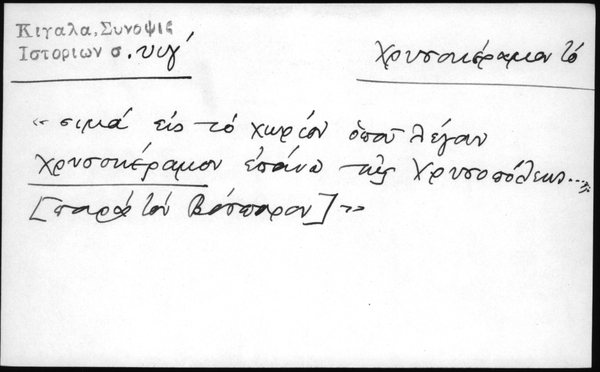 Κιγαλα, Συνοψις
Ιστοριων σ. υιγ΄
Χρυσοκέραμον τό
«σιμά εἰς τό χωρίον ὁποῦ λέγαν
Χρυσοκέραμον ἐπάνω τῆς Χρυσοπόλεως...
[παρά τόν Βόσπορον]»